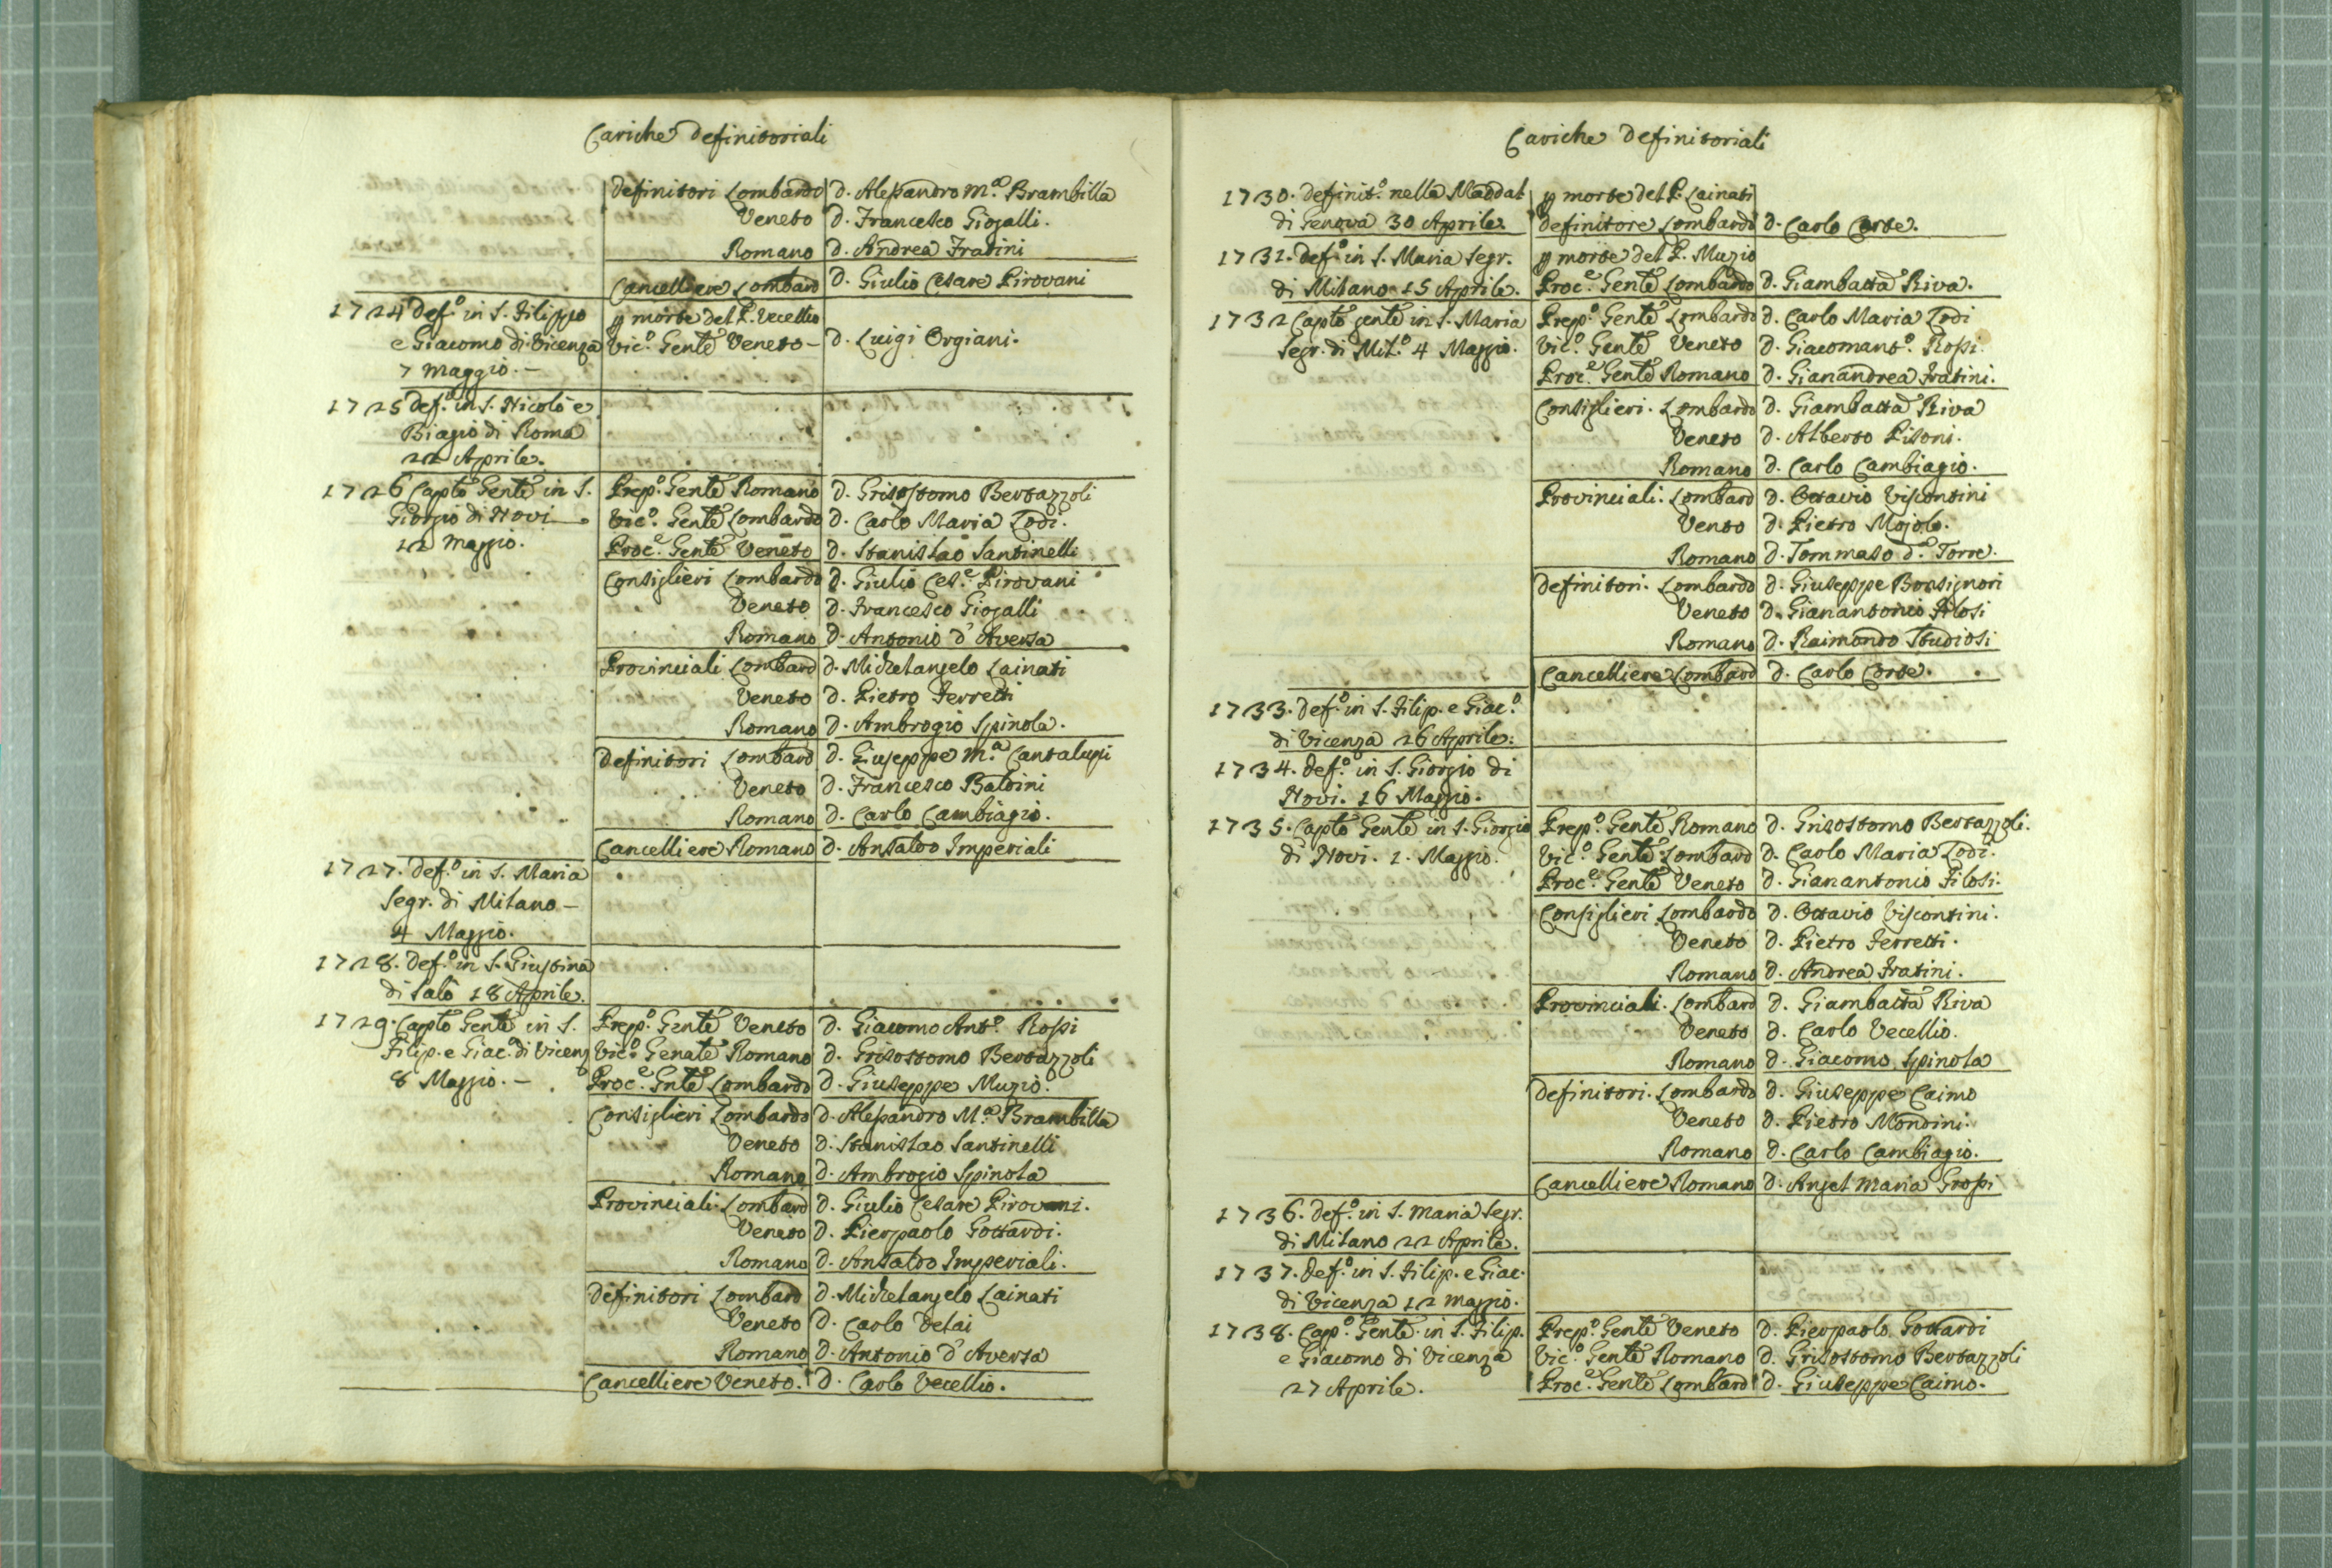 Cariche Definitoriali
Definitori Lombardo D. Alessandro M.ª Brambilla
Veneto D. Francesco Giogalli.
Romano D. Andrea Fratini
Cancelliere Lombard D. Giulio Cesare Pirovani
1724 Def.º in S. Filippo p morte del P. Vecellio
e Giacomo di Vicenza Vic.º Gen̄te Veneto - D. Luigi Orgiani.
7 Maggio. -
1725 Def.º in S. Nicolò e
Biagio di Roma
22 Aprile.
1726 Capto Gente in S. Prep.º Gente Romano D. Grisostomo Bertazzoli
Giorgio di Novi Vic.º Gente Lombardo D. Carlo Maria Lodi.
12 Maggio. Proc.e Gente Veneto D. Stanislao Santinelli
Consiglieri Lombardo D. Giulio Ces.e Pirovani
Veneto D. Francesco Giogalli
Romano D. Antonio d'Aversa
Provinciali Lombard D. Michelangelo Lainati
Veneto D. Pietro Ferretti
Romano D. Ambrogio Spinola.
Definitori Lombard D. Giuseppe M.ª Cantalupi
Veneto D. Francesco Baldini
Romano D. Carlo Cambiagio.
Cancelliere Romano D. Ansaldo Imperiali
1727. Def.º in S. Maria
Segr. di Milano -
4 Maggio.
1728. Def.º in S. Giustina
di Salò 18 Aprile.
1729. Capto Gente in S. Prep.º Gente Veneto D. Giacomo Ant.º Rossi
Filip. e Giac.º di Vicenz Vic.º Genale Romano D. Grisostomo Bertazzoli
8 Maggio. - Proc.e Gnte Lombardo D. Giuseppe Muzio.
Consiglieri Lombardo D. Alessandro M.ª Brambilla
Veneto D. Stanislao Santinelli
Romano D. Ambrogio Spinola
Provinciali Lombard D. Giulio Cesare Pirovani.
Veneto D. Pierpaolo Gottardi.
Romano D. Ansaldo Imperiali.
Definitori Lombard D. Michelangelo Lainati
Veneto D. Carlo Delai
Romano D. Antonio d'Aversa
Cancelliere Veneto. D. Carlo Vecellio.
Cariche Definitoriali
1730. Definit.º nella Maddal p morte del P. Lainati
di Genova 30 Aprile. Definitore Lombardo D. Carlo Corte.
1731. Def.º in S. Maria Segr. p morte del P. Muzio
di Milano 15 Aprile. Proc.e Gente Lombardo D. Giambatta Riva.
1732 Capto gente in S. Maria Prep.º Gente Lombardo D. Carlo Maria Lodi
Segr. di Mil.º 4 Maggio. Vic.º Gente Veneto D. Giacomant.º Rossi.
Proc.e Gente Romano D. Gianandrea Fratini.
Consiglieri. Lombardo D. Giambatta Riva
Veneto D. Alberto Pisoni.
Romano D. Carlo Cambiagio.
Provinciali. Lombard D. Ottavio Viscontini
Veneto D. Pietro Mojolo.
Romano D. Tommaso d.ª Torre.
Definitori. Lombardo D. Giuseppe Bonsignori
Veneto D. Gianantonio Filosi
Romano D. Raimondo Studiosi
Cancelliere Lombard D. Carlo Corte.
1733. Def.º in S. Filip. e Giac.º
di Vicenza 26 Aprile.
1734. Def.º in S. Giorgio di
Novi. 16 Maggio.
1735. Capto Gente in S. Giorgio Prep.º Gente Romano D. Grisostomo Bertazzoli.
di Novi. 1. Maggio. Vic.º Gente Lombard D. Carlo Maria Lodi.
Proc.e Gente Veneto D. Gianantonio Filosi.
Consiglieri Lombardo D. Ottavio Viscontini.
Veneto D. Pietro Ferretti.
Romano D. Andrea Fratini.
Provinciali. Lombard D. Giambatta Riva
Veneto D. Carlo Vecellio.
Romano D. Giacomo Spinola
Definitori. Lombardo D. Giuseppe Caimo
Veneto D. Pietro Mondini.
Romano D. Carlo Cambiagio.
Cancelliere Romano D. Angel Maria Grossi
1736. Def.º in S. Maria Segr.
di Milano 22 Aprile.
1737. Def.º in S. Filip. e Giac.
di Vicenza 12 Maggio.
1738. Cap.º Gente in S. Filip. Prep.º Gente Veneto D. Pierpaolo Gottardi
e Giacomo di Vicenza Vic.º Gente Romano D. Grisostomo Bertazzoli
27 Aprile. Proc.e Gente Lombard D. Giuseppe Caimo.